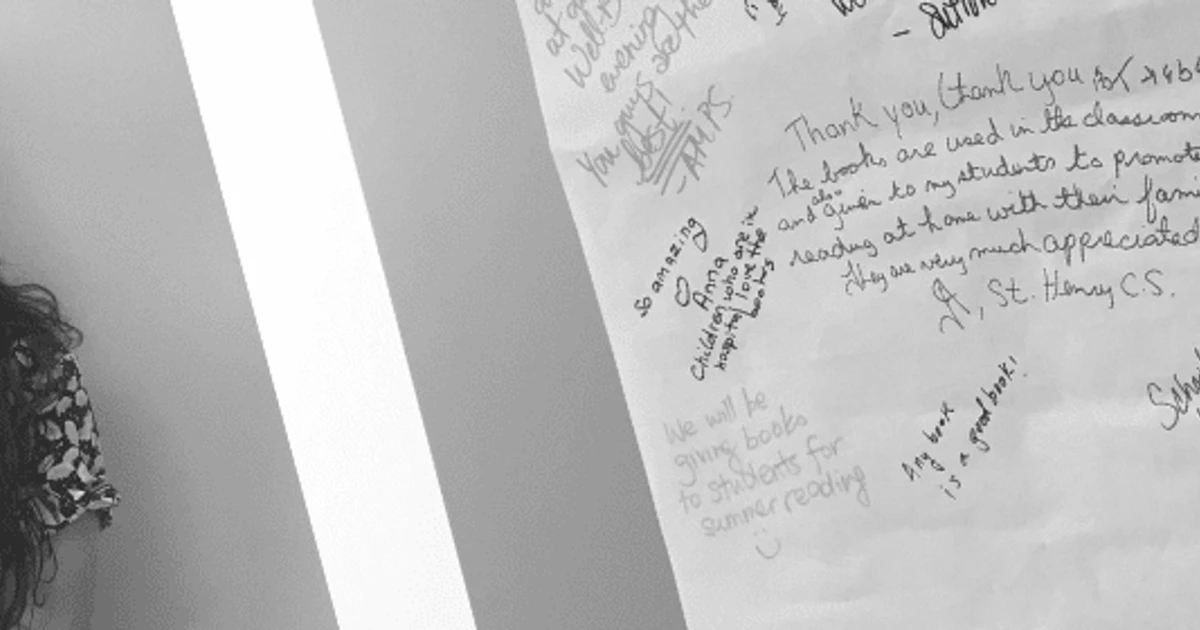 at
Well-
evening
You guys are the
best!!
- AMPS.
- Sutton
Thank you, thank you
The books are used in the classroom
also
and given to my students to promote
reading at home with their fami
They are very much appreciated
St. Henry C.S.
So amazing
Anna
Children who are in
hospital love the
books
We will be
giving books
to students for
summer reading
Any book
is a good book!
Scho